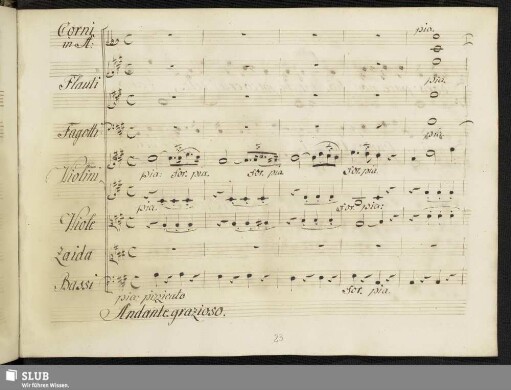 Corni
in A:
pia.
Flauti
pia.
Fagotti
pia.
Violini
pia: for. pia. for. pia for. pia
pia. for pia:
Viole
Zaida
Bassi
for. pia.
pia: pizicato
Andante grazioso.
23
SLUB
Wir führen Wissen.